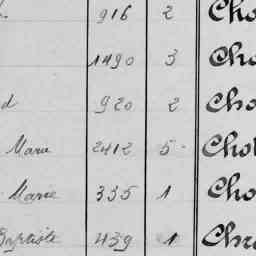 916 2 Cho
1490 3 Cho
d 920 2 Cho
Marie 2412 5 Chol
Marie 335 1 Cho
Baptiste 439 1 Chr